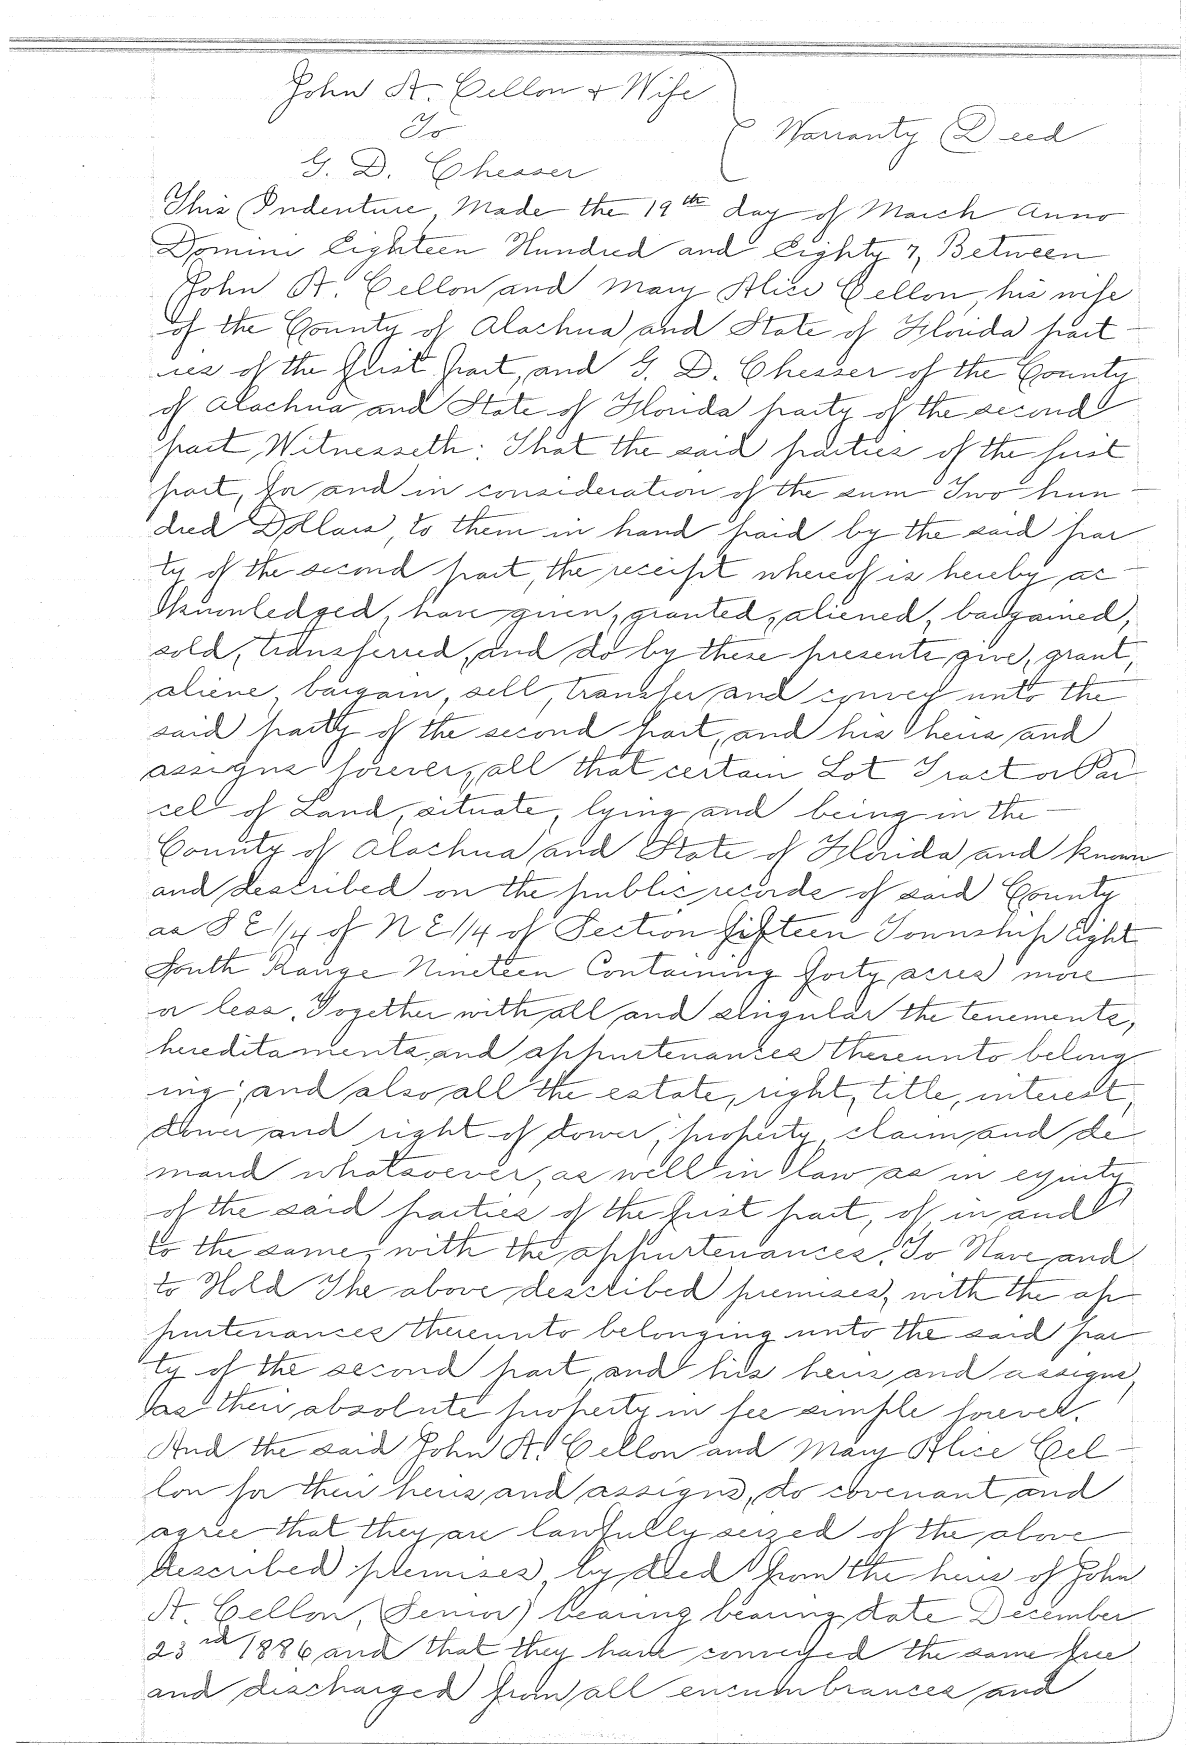 John A. Cellon & Wife
To
Warranty Deed
G. D. Chesser
This Indenture, Made the 19th day of March Anno
Domini Eighteen Hundred and Eighty 7, Between
John A. Cellon and Mary Alice Cellon, his wife
of the County of Alachua and State of Florida part-
ies of the first part, and G. D. Chesser of the County
of Alachua and State of Florida party of the second
part Witnesseth: That the said parties of the first
part, for and in consideration of the sum Two hun-
dred Dollars, to them in hand paid by the said par
ty of the second part, the receipt whereof is hereby ac-
knowledged, have given, granted, aliened, bargained,
sold, transferred, and do by these presents give, grant,
aliene, bargain, sell, transfer and convey unto the
said party of the second part, and his heirs and
assigns forever, all that certain Lot Tract or Par
cel of Land, situate, lying and being in the
County of Alachua and State of Florida and known
and described on the public records of said County
as S E 1/4 of N E 1/4 of Section fifteen Township Eight
South Range Nineteen Containing forty acres more
or less. Together with all and singular the tenements,
hereditaments, and appurtenances thereunto belong
ing; and also all the estate, right, title, interest,
dower and right of dower, property, claim and de
mand whatsoever, as well in law as in equity
of the said parties of the first part, of, in and
to the same, with the appurtenances. To Have and
to Hold The above described premises, with the ap
purtenances thereunto belonging unto the said par
ty of the second part, and his heirs and assigns,
as their absolute property in fee simple forever.
And the said John A. Cellon and Mary Alice Cel-
lon for their heirs and assigns, do covenant and
agree that they are lawfully seized of the above
described premises, by deed from the heirs of John
A. Cellon, (Senior) bearing bearing date December
23rd 1886 and that they have conveyed the same free
and discharged from all encumbrances and